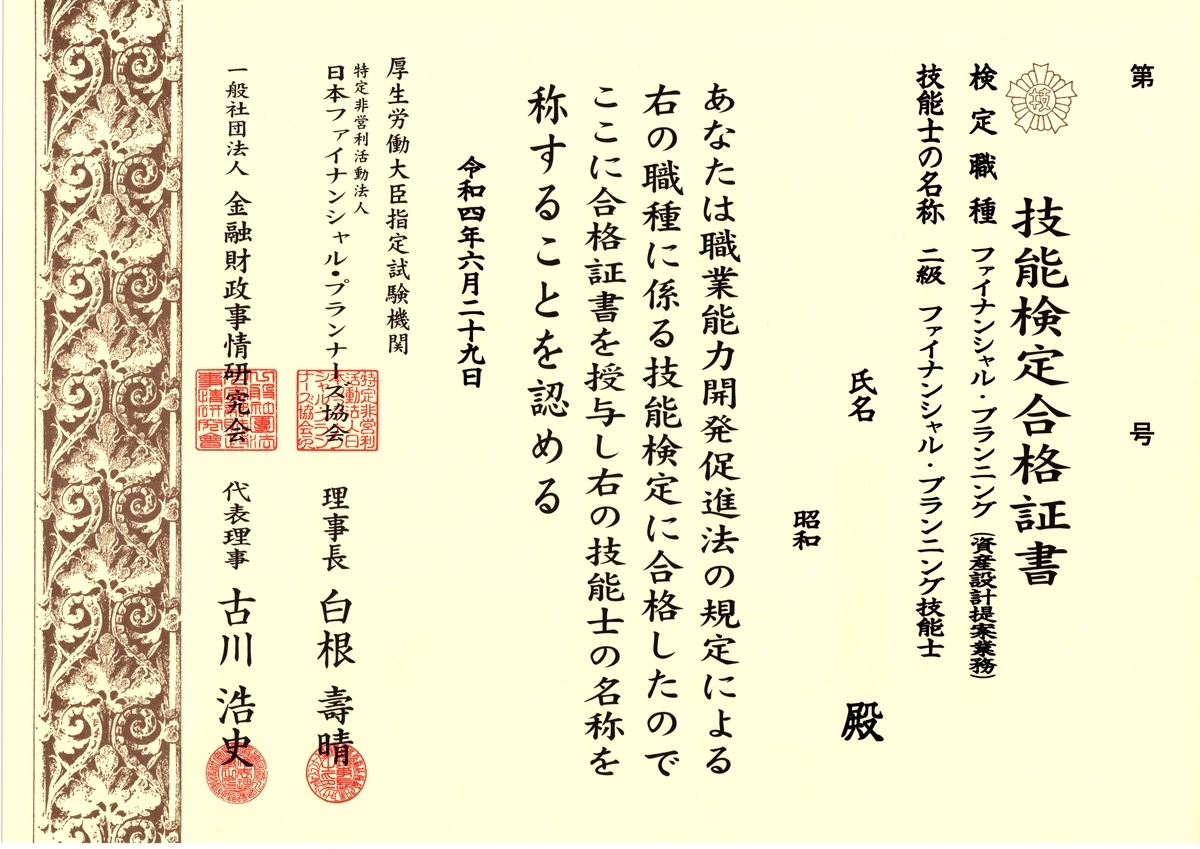 第 号
技
技能検定合格証書
検定職種 ファイナンシャル・プランニング（資産設計提案業務）
技能士の名称 二級 ファイナンシャル・プランニング技能士
氏名 殿
昭和
あなたは職業能力開発促進法の規定による
右の職種に係る技能検定に合格したので
ここに合格証書を授与し右の技能士の名称を
称することを認める
令和四年六月二十九日
厚生労働大臣指定試験機関
特定非営利活動法人
日本ファイナンシャル・プランナーズ協会 理事長 白根 壽晴
一般社団法人 金融財政事情研究会 代表理事 古川 浩史